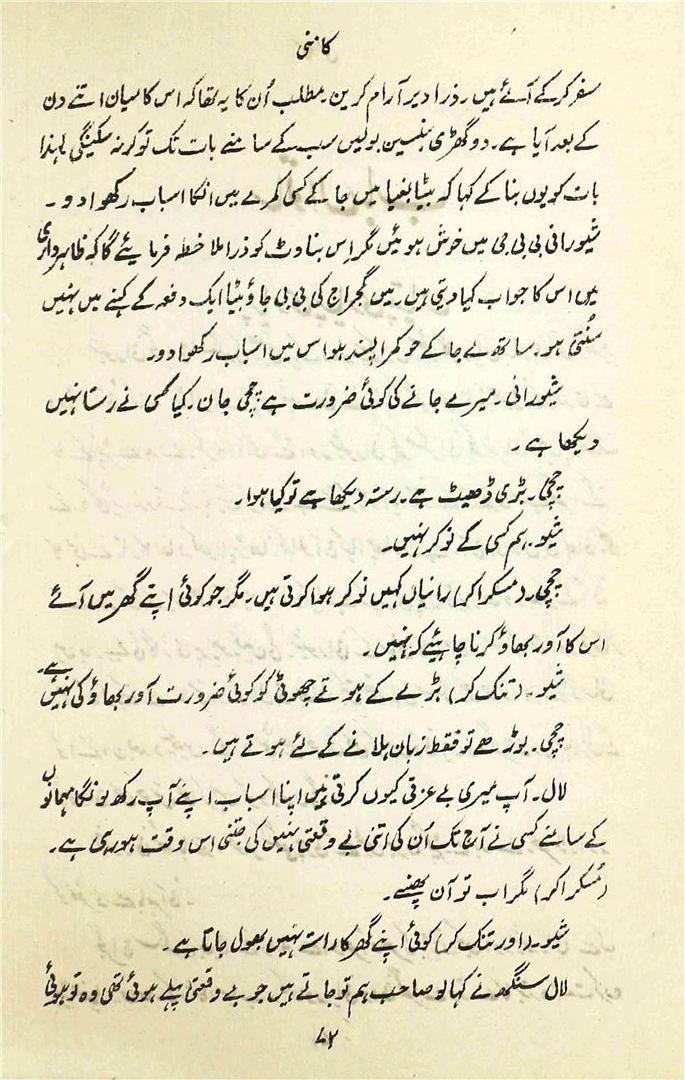 کامنی
سفر کر کے آئے ہیں۔ ذرا دیر آرام کرین۔ مطلب اُن کا یہ تھا کہ اس کا میان اتنے دن
کے بعد آیا ہے۔ دو گھڑی ہنسین بولیں سب کے سامنے بات تک تو کر نہ سکینگی لہذا
بات کو یوں بنا کے کہا کہ بیٹا بغیا میں جا کے کسی کمرے میں انکا اسباب رکھوا دو۔
شیورانی بی بی جی میں خوش ہوئیں مگر اس بناوٹ کو ذرا ملاحظہ فرمایئے گا کہ ظاہرداری
میں اس کا جواب کیا دیتی ہیں۔ میں گجراج کی بی بی جاؤ بیٹا ایک دفعہ کے کہنے میں نہیں
سُنتی ہو۔ ساتھ لے جا کے جو کمرا پسند ہو اس میں اسباب رکھوا دو۔
شیورانی۔ میرے جانے کی کوئی ضرورت ہے چچی جان۔ کیا کسی نے رستا نہیں
دیکھا ہے۔
چچی۔ بڑی ڈھیٹ ہے۔ رستہ دیکھا ہے تو کیا ہوا۔
شیو۔ ہم کسی کے نوکر نہیں۔
چچی۔ (مسکرا کر) رانیاں کہیں نوکر ہوا کرتی ہیں۔ مگر جو کوئی اپنے گھر میں آئے
اس کا آور بھاؤ کرنا چاہیئے کہ نہیں۔
شیو۔ (تنک کر) بڑے کے ہوتے چھوٹی کو کوئی ضرورت آور بھاؤ کی نہیں ہے۔
چچی۔ بوڑھے تو فقط زبان ہلانے کے لئے ہوتے ہیں۔
لال۔ آپ میری بے عزتی کیوں کرتی ہیں اپنا اسباب اپنے آپ رکھ لونگا مہمانوں
کے سامنے کسی نے آج تک اُن کی اتنی بے وقعتی نہیں کی جتنی اس وقت ہو رہی ہے۔
(مسکرا کر) مگر اب تو آن پھنسے۔
شیو۔ (اور تنک کر) کوئی اپنے گھر کا راستہ نہیں بھول جاتا ہے۔
لال سنگھ نے کہا لو صاحب ہم تو جاتے ہیں جو بے وقعتی پہلے ہوئی تھی وہ تو ہوئی
۷۲